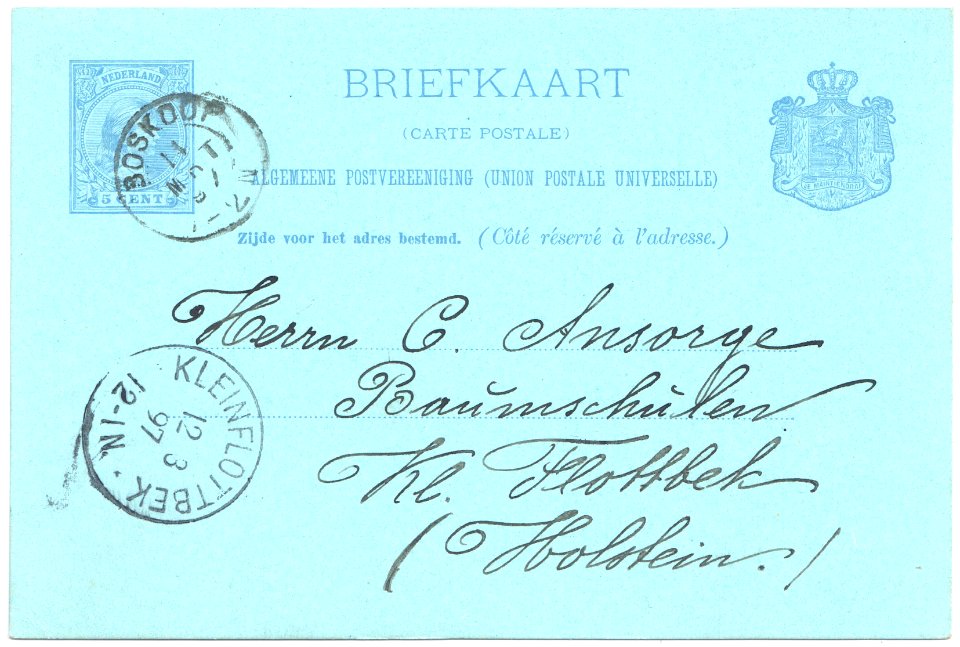 NEDERLAND
5 CENT
BRIEFKAART
(CARTE POSTALE)
ALGEMEENE POSTVEREENIGING (UNION POSTALE UNIVERSELLE)
Zijde voor het adres bestemd. (Côté réservé à l'adresse.)
JE MAINTIENDRAI
BOSKOOP
Herrn C. Ansorge
Baŭmschŭlen
Kl. Flottbek
(Holstein.)
KLEINFLOTTBEK
12 3
97
12-1N.